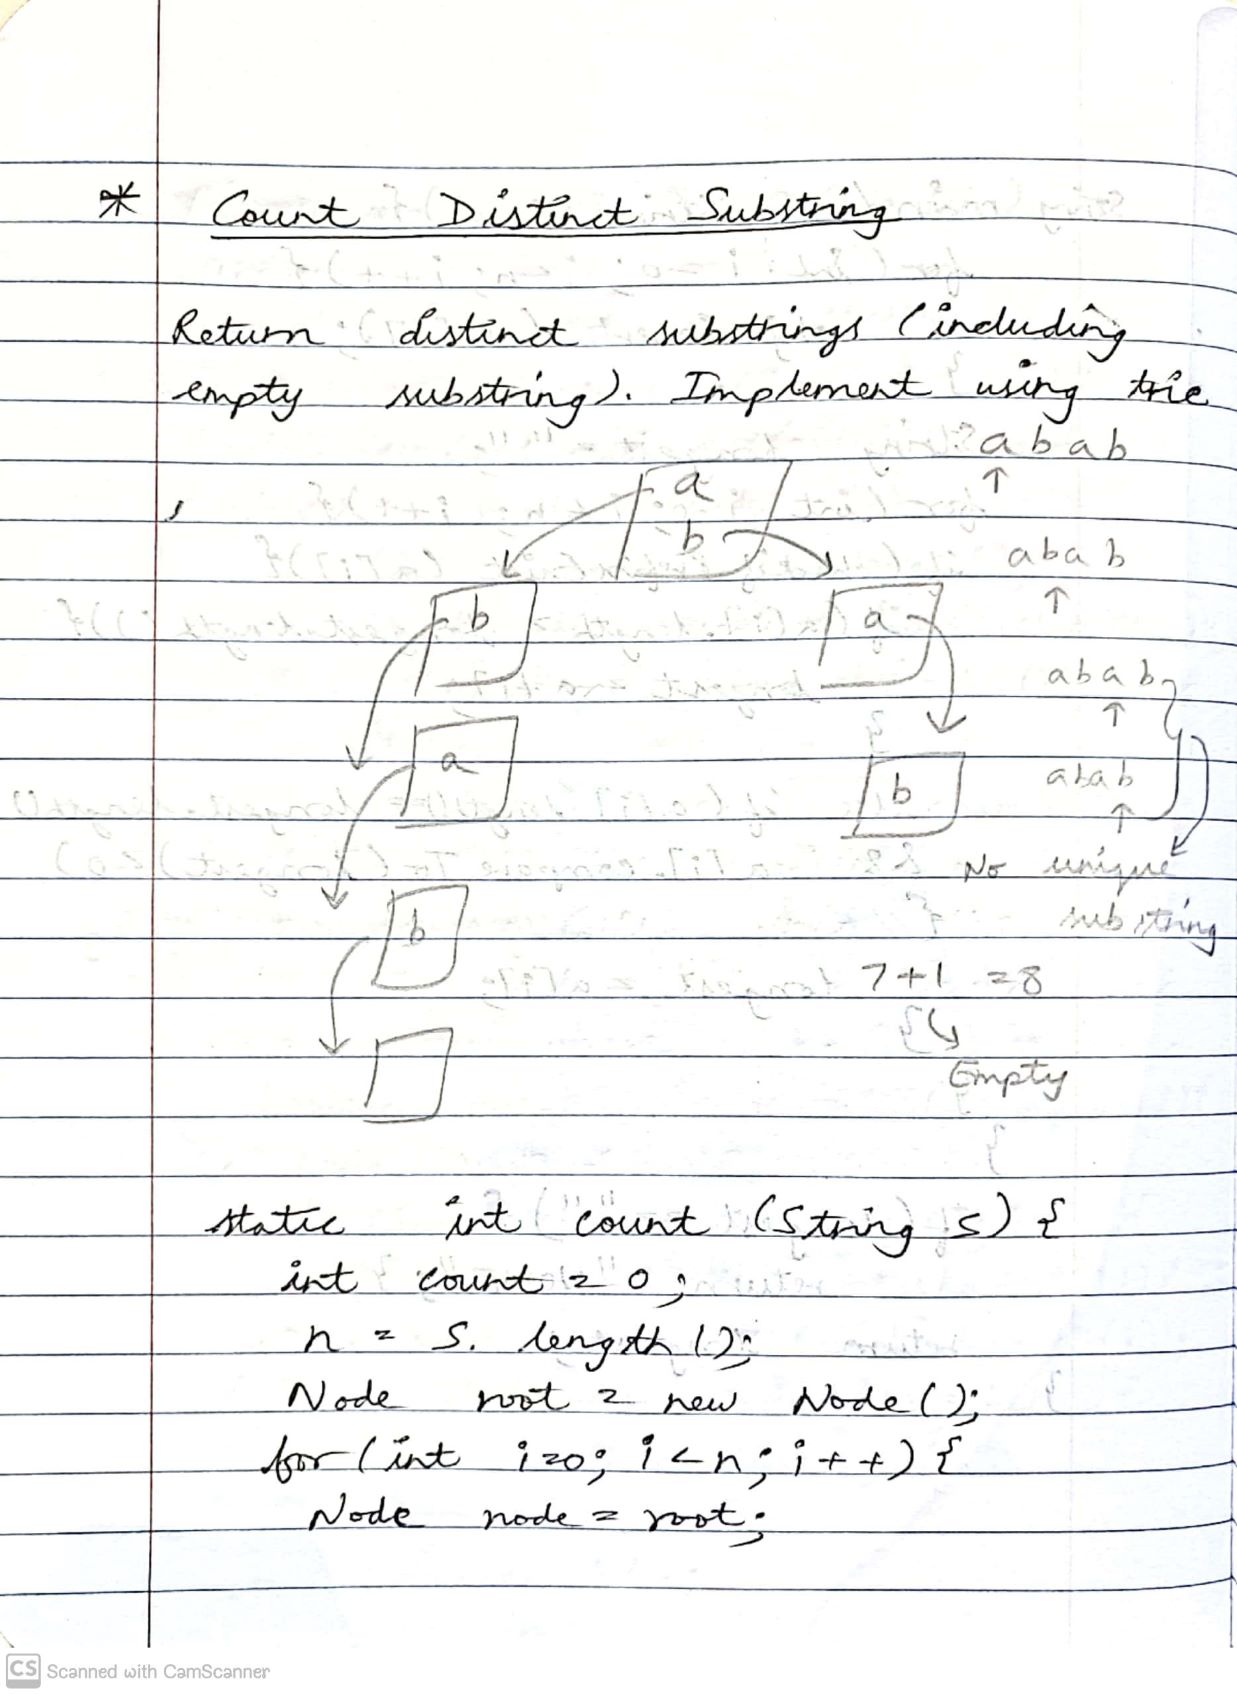 * Count Distinct Substring
Return distinct substrings (including
empty substring). Implement using trie
a b a b
↑
a
b
a b a b
↑
b
a
a b a b
↑
a
b
a b a b
↑
No unique
substring
b
7+1 = 8
Empty
static int count (String s) {
int count = 0;
n = s. length ();
Node root = new Node ();
for (int i=0; i<n; i++) {
Node node = root;
CS Scanned with CamScanner